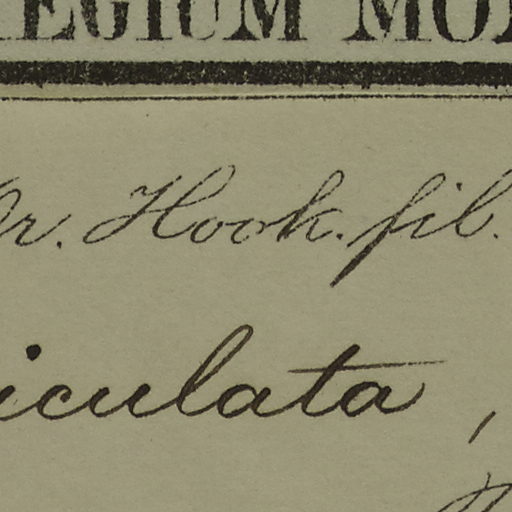 EGIUM MO
Dr. Hook. fil.
iculata,